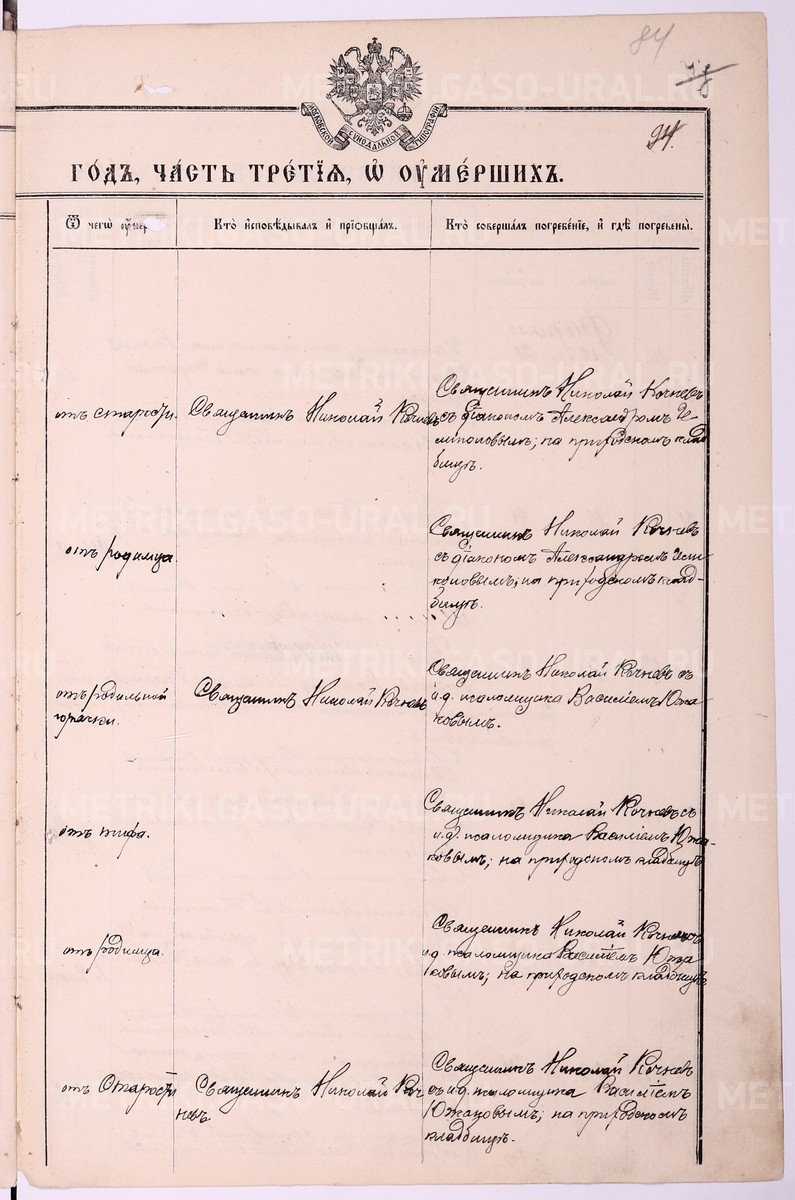 84
94.
МОСКОВСКОЙ СѴНОДАЛЬНОЙ ТИПОГРАФІИ
ГОДЪ, ЧАСТЬ ТРЕТІЯ, Ѡ ОУМЕРШИХЪ.
Ѿ чегѡ оумер
Кто исповѣдывалъ и пріобщалъ.
Кто совершалъ погребеніе, и гдѣ погребены.
отъ старости.
Священникъ Николай Кочневъ
Священникъ Николай Кочневъ
съ діакономъ Александромъ
на приходскомъ клад-
бищѣ.
отъ родимца
Священникъ Николай Кочневъ
съ діакономъ Александромъ
на приходскомъ клад-
бищѣ.
отъ родильной
горячки.
Священникъ Николай Кочневъ
Священникъ Николай Кочневъ съ
и.д. псаломщика Василіемъ Южа-
ковымъ.
отъ тифа.
Священникъ Николай Кочневъ съ
и.д. псаломщика Василіемъ Южа-
ковымъ; на приходскомъ кладбищѣ
отъ родимца.
Священникъ Николай Кочневъ
и.д. псаломщика Василіемъ Южа
ковымъ; на приходскомъ кладбищѣ
отъ Старости
Священникъ Николай Коч
невъ.
Священникъ Николай Кочневъ
съ и.д. псаломщика Василіемъ
Южаковымъ; на приходскомъ
кладбищѣ.
METRIKI.GASO-URAL.RU